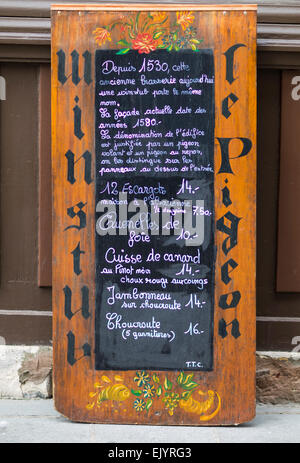 winstub
Depuis 1530, cette
ancienne brasserie aujourd'hui
une winstub porte le même
nom.
La façade actuelle date des
années 1580.
La dénomination de l'édifice
est justifiée par un pigeon
volant et un pigeon au repos,
on les distingue sur les
panneaux au dessus de l'entrée.
12 Escargots 14.-
maison à l'alsacienne
7,50.-
Quenelles de
foie 10.-
Cuisse de canard
au Pinot noir 14.-
choux rouge aux coings
Jambonneau
sur choucroute 14.-
Choucroute 16.-
(5 garnitures)
T.T.C.
le Pigeon
alamy stock photo
EJYRG3
www.alamy.com